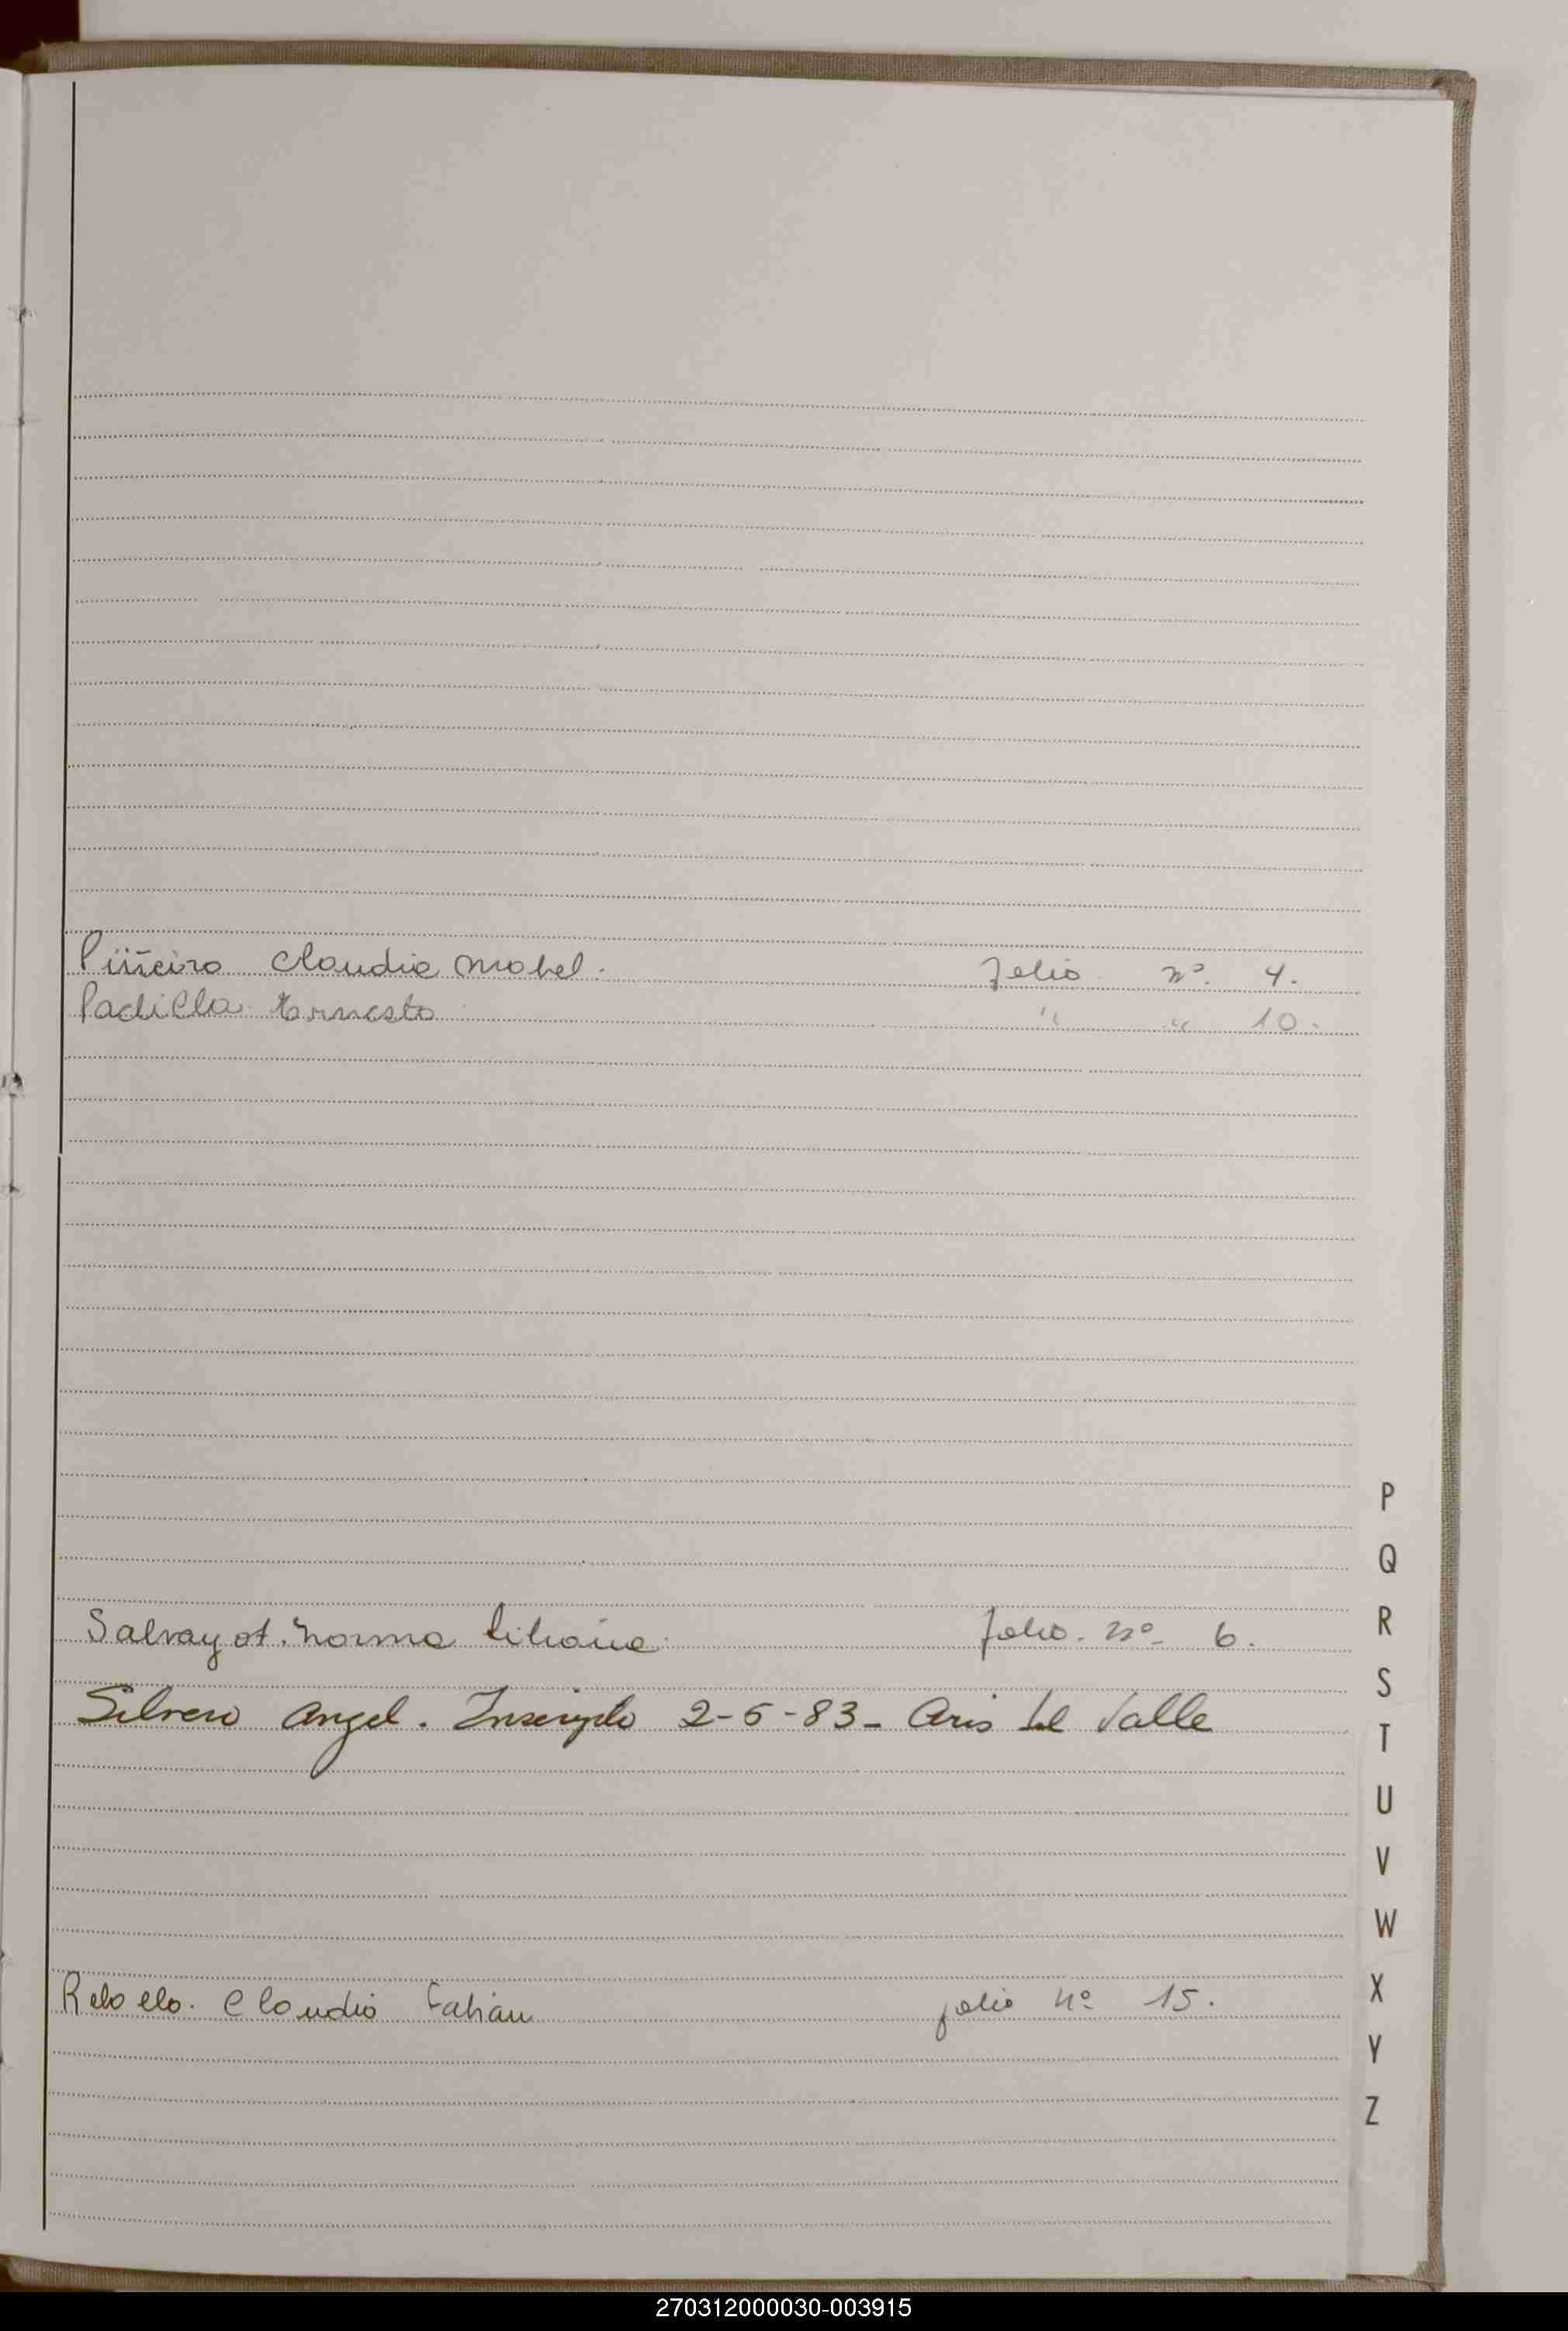 Piñeiro Claudia Mabel. folio nº 4.
Padilla Ernesto " " 10.
P
Q
Salvayot. Norma Liliana. folio. nº 6.
R
S
Silvero Angel. Inscripto 2-5-83- Aris del Valle
T
U
V
W
X
Rebollo. Claudio Fabián folio nº 15.
Y
Z
270312000030-003915